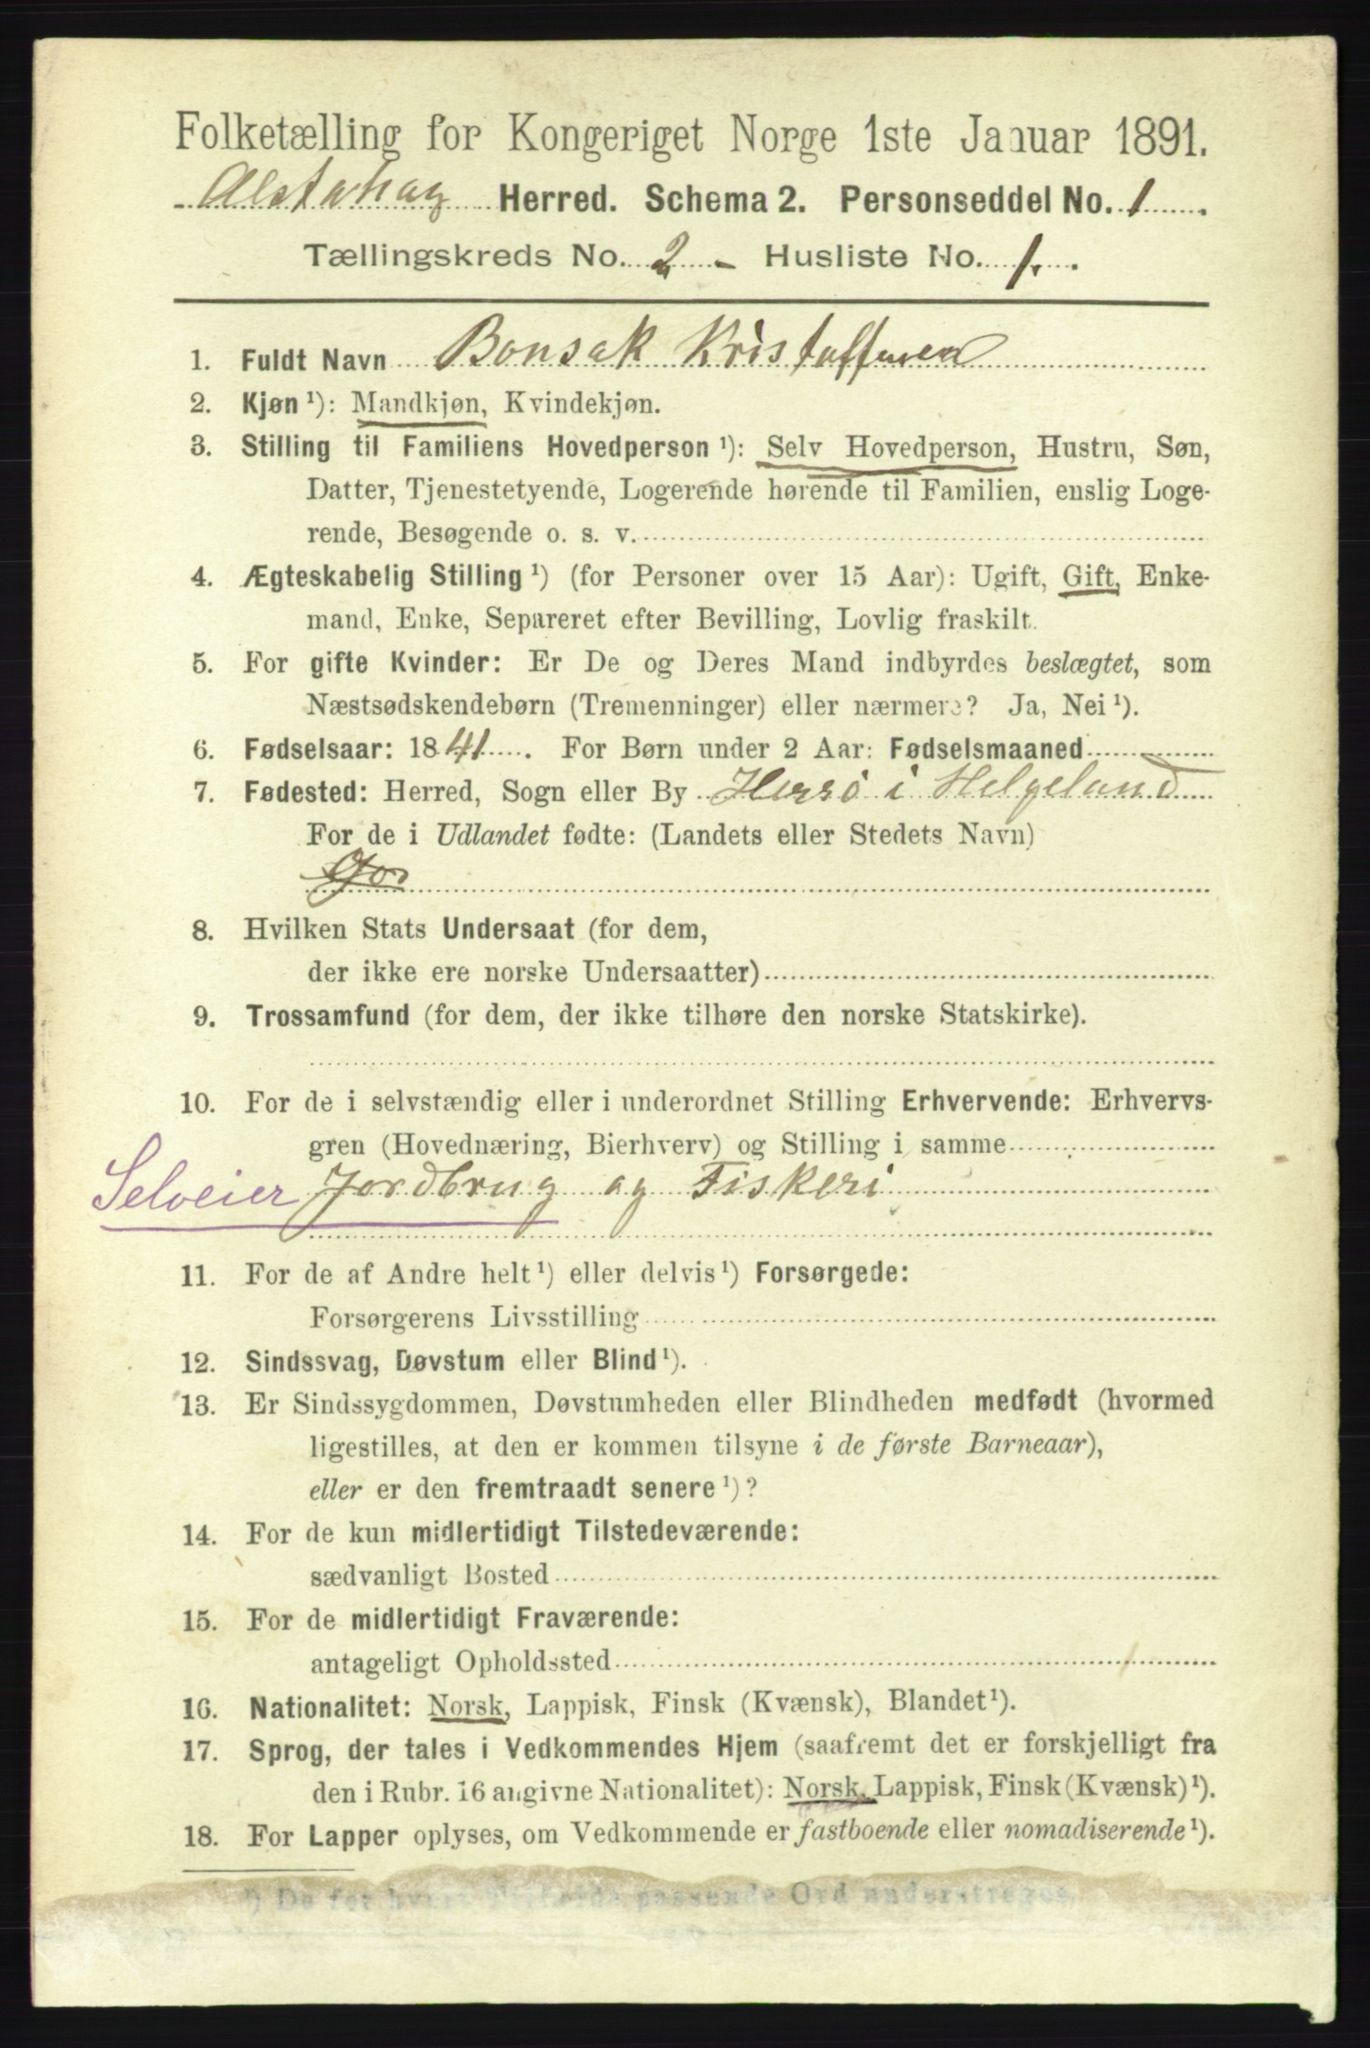 Folketælling for Kongeriget Norge 1ste Januar 1891.
Alstahaug Herred. Schema 2. Personseddel No. 1.
Tællingskreds No. 2 - Husliste No. 1.
1. Fuldt Navn Bonsak Kristoffersen
2. Kjøn ¹): Mandkjøn, Kvindekjøn.
3. Stilling til Familiens Hovedperson ¹): Selv Hovedperson, Hustru, Søn,
Datter, Tjenestetyende, Logerende hørende til Familien, enslig Loge-
rende, Besøgende o. s. v.
4. Ægteskabelig Stilling ¹) (for Personer over 15 Aar): Ugift, Gift, Enke-
mand, Enke, Separeret efter Bevilling, Lovlig fraskilt.
5. For gifte Kvinder: Er De og Deres Mand indbyrdes beslægtet, som
Næstsødskendebørn (Tremenninger) eller nærmere? Ja, Nei ¹).
6. Fødselsaar: 1841. For Børn under 2 Aar: Fødselsmaaned
7. Fødested: Herred, Sogn eller By Herrö i Helgeland
For de i Udlandet fødte: (Landets eller Stedets Navn)
8. Hvilken Stats Undersaat (for dem,
der ikke ere norske Undersaatter)
9. Trossamfund (for dem, der ikke tilhøre den norske Statskirke).
10. For de i selvstændig eller i underordnet Stilling Erhvervende: Erhvervs-
gren (Hovednæring, Bierhverv) og Stilling i samme
Selveier Jordbrug og Fiskeri
11. For de af Andre helt ¹) eller delvis ¹) Forsørgede:
Forsørgerens Livsstilling
12. Sindssvag, Døvstum eller Blind ¹).
13. Er Sindssygdommen, Døvstumheden eller Blindheden medfødt (hvormed
ligestilles, at den er kommen tilsyne i de første Barneaar),
eller er den fremtraadt senere ¹)?
14. For de kun midlertidigt Tilstedeværende:
sædvanligt Bosted
15. For de midlertidigt Fraværende:
antageligt Opholdssted
16. Nationalitet: Norsk, Lappisk, Finsk (Kvænsk), Blandet ¹).
17. Sprog, der tales i Vedkommendes Hjem (saafremt det er forskjelligt fra
den i Rubr. 16 angivne Nationalitet): Norsk, Lappisk, Finsk (Kvænsk) ¹).
18. For Lapper oplyses, om Vedkommende er fastboende eller nomadiserende ¹).
¹) De for hvert Tilfælde passende Ord understreges.